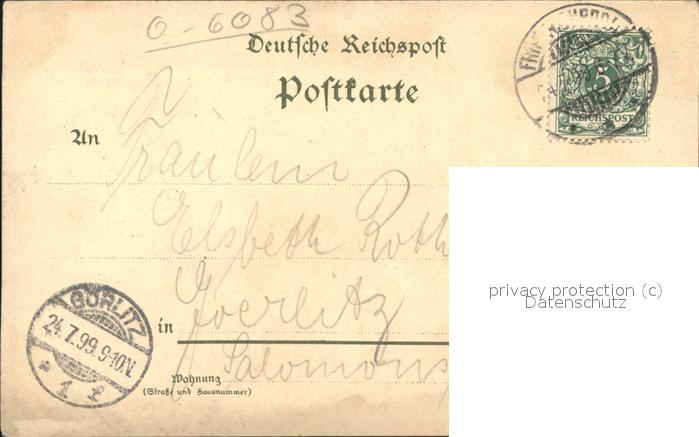 0-6083
Deutsche Reichspost
Postkarte
5
REICHSPOST
An
Fräulein
Elsbeth Roth
Goerlitz
in
Salomons
Wohnung
(Straße und Hausnummer)
GÖRLITZ
24.7.99.9-10V.
* 1 f
privacy protection (c)
Datenschutz